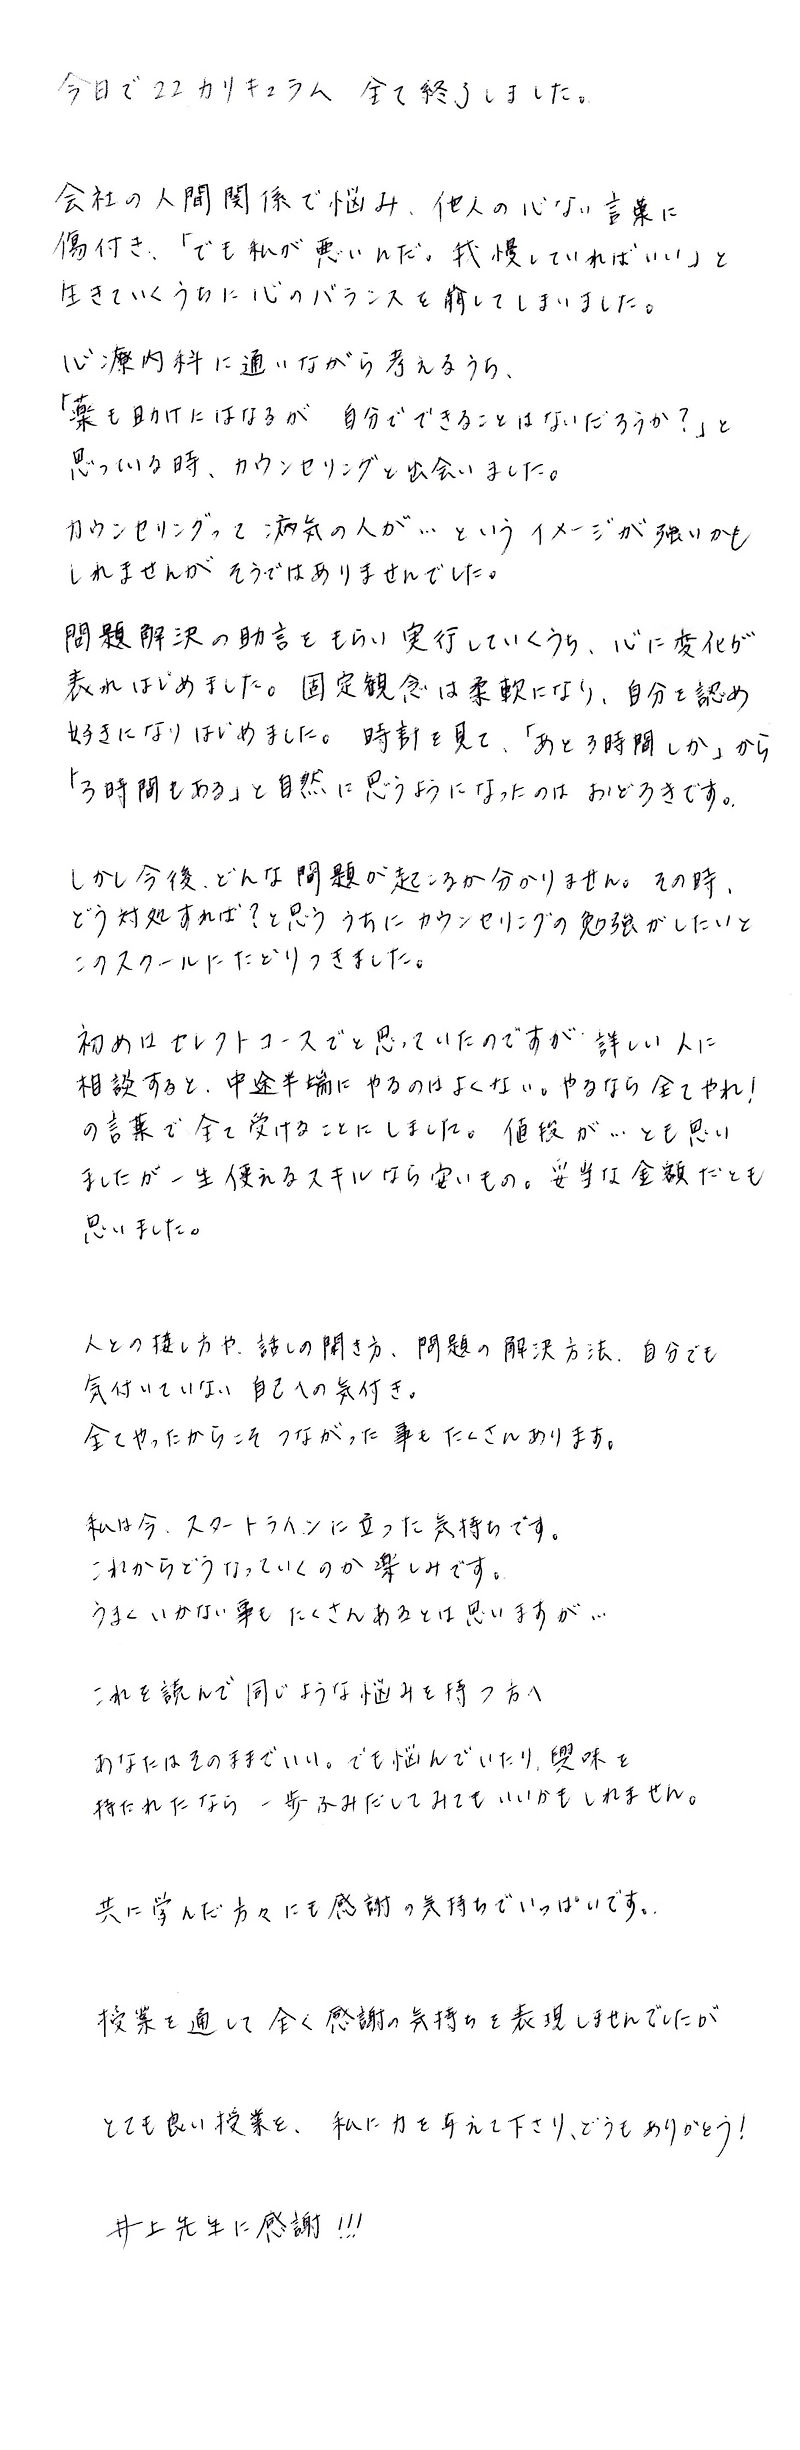 今日で22カリキュラム 全て終了しました。
会社の人間関係で悩み、他人の心ない言葉に
傷付き、「でも私が悪いんだ。我慢していればいい」と
生きていくうちに心のバランスを崩してしまいました。
心療内科に通いながら考えるうち、
「薬も助けにはなるが 自分でできることはないだろうか?」と
思っている時、カウンセリングと出会いました。
カウンセリングって病気の人が…というイメージが強いかも
しれませんがそうではありませんでした。
問題解決の助言をもらい実行していくうち、心に変化が
表れはじめました。固定観念は柔軟になり、自分を認め
好きになりはじめました。時計を見て、「あと3時間しか」から
「3時間もある」と自然に思うようになったのは おどろきです。
しかし今後、どんな問題が起こるか分かりません。その時、
どう対処すれば?と思ううちにカウンセリングの勉強がしたいと
このスクールにたどりつきました。
初めはセレクトコースでと思っていたのですが 詳しい人に
相談すると、中途半端にやるのはよくない。やるなら全てやれ!
の言葉で全て受けることにしました。値段が…とも思い
ましたが一生使えるスキルなら安いもの。妥当な金額だとも
思いました。
人との接し方や、話しの聞き方、問題の解決方法、自分でも
気付いていない自己への気付き。
全てやったからこそつながった事もたくさんあります。
私は今、スタートラインに立った気持ちです。
これからどうなっていくのか楽しみです。
うまくいかない事もたくさんあるとは思いますが…
これを読んで同じような悩みを持つ方へ
あなたはそのままでいい。でも悩んでいたり、興味を
持たれたなら一歩ふみだしてみてもいいかもしれません。
共に学んだ方々にも感謝の気持ちでいっぱいです。
授業を通して全く感謝の気持ちを表現しませんでしたが
とても良い授業を、私に力を与えて下さり、どうもありがとう!
井上先生に感謝!!!